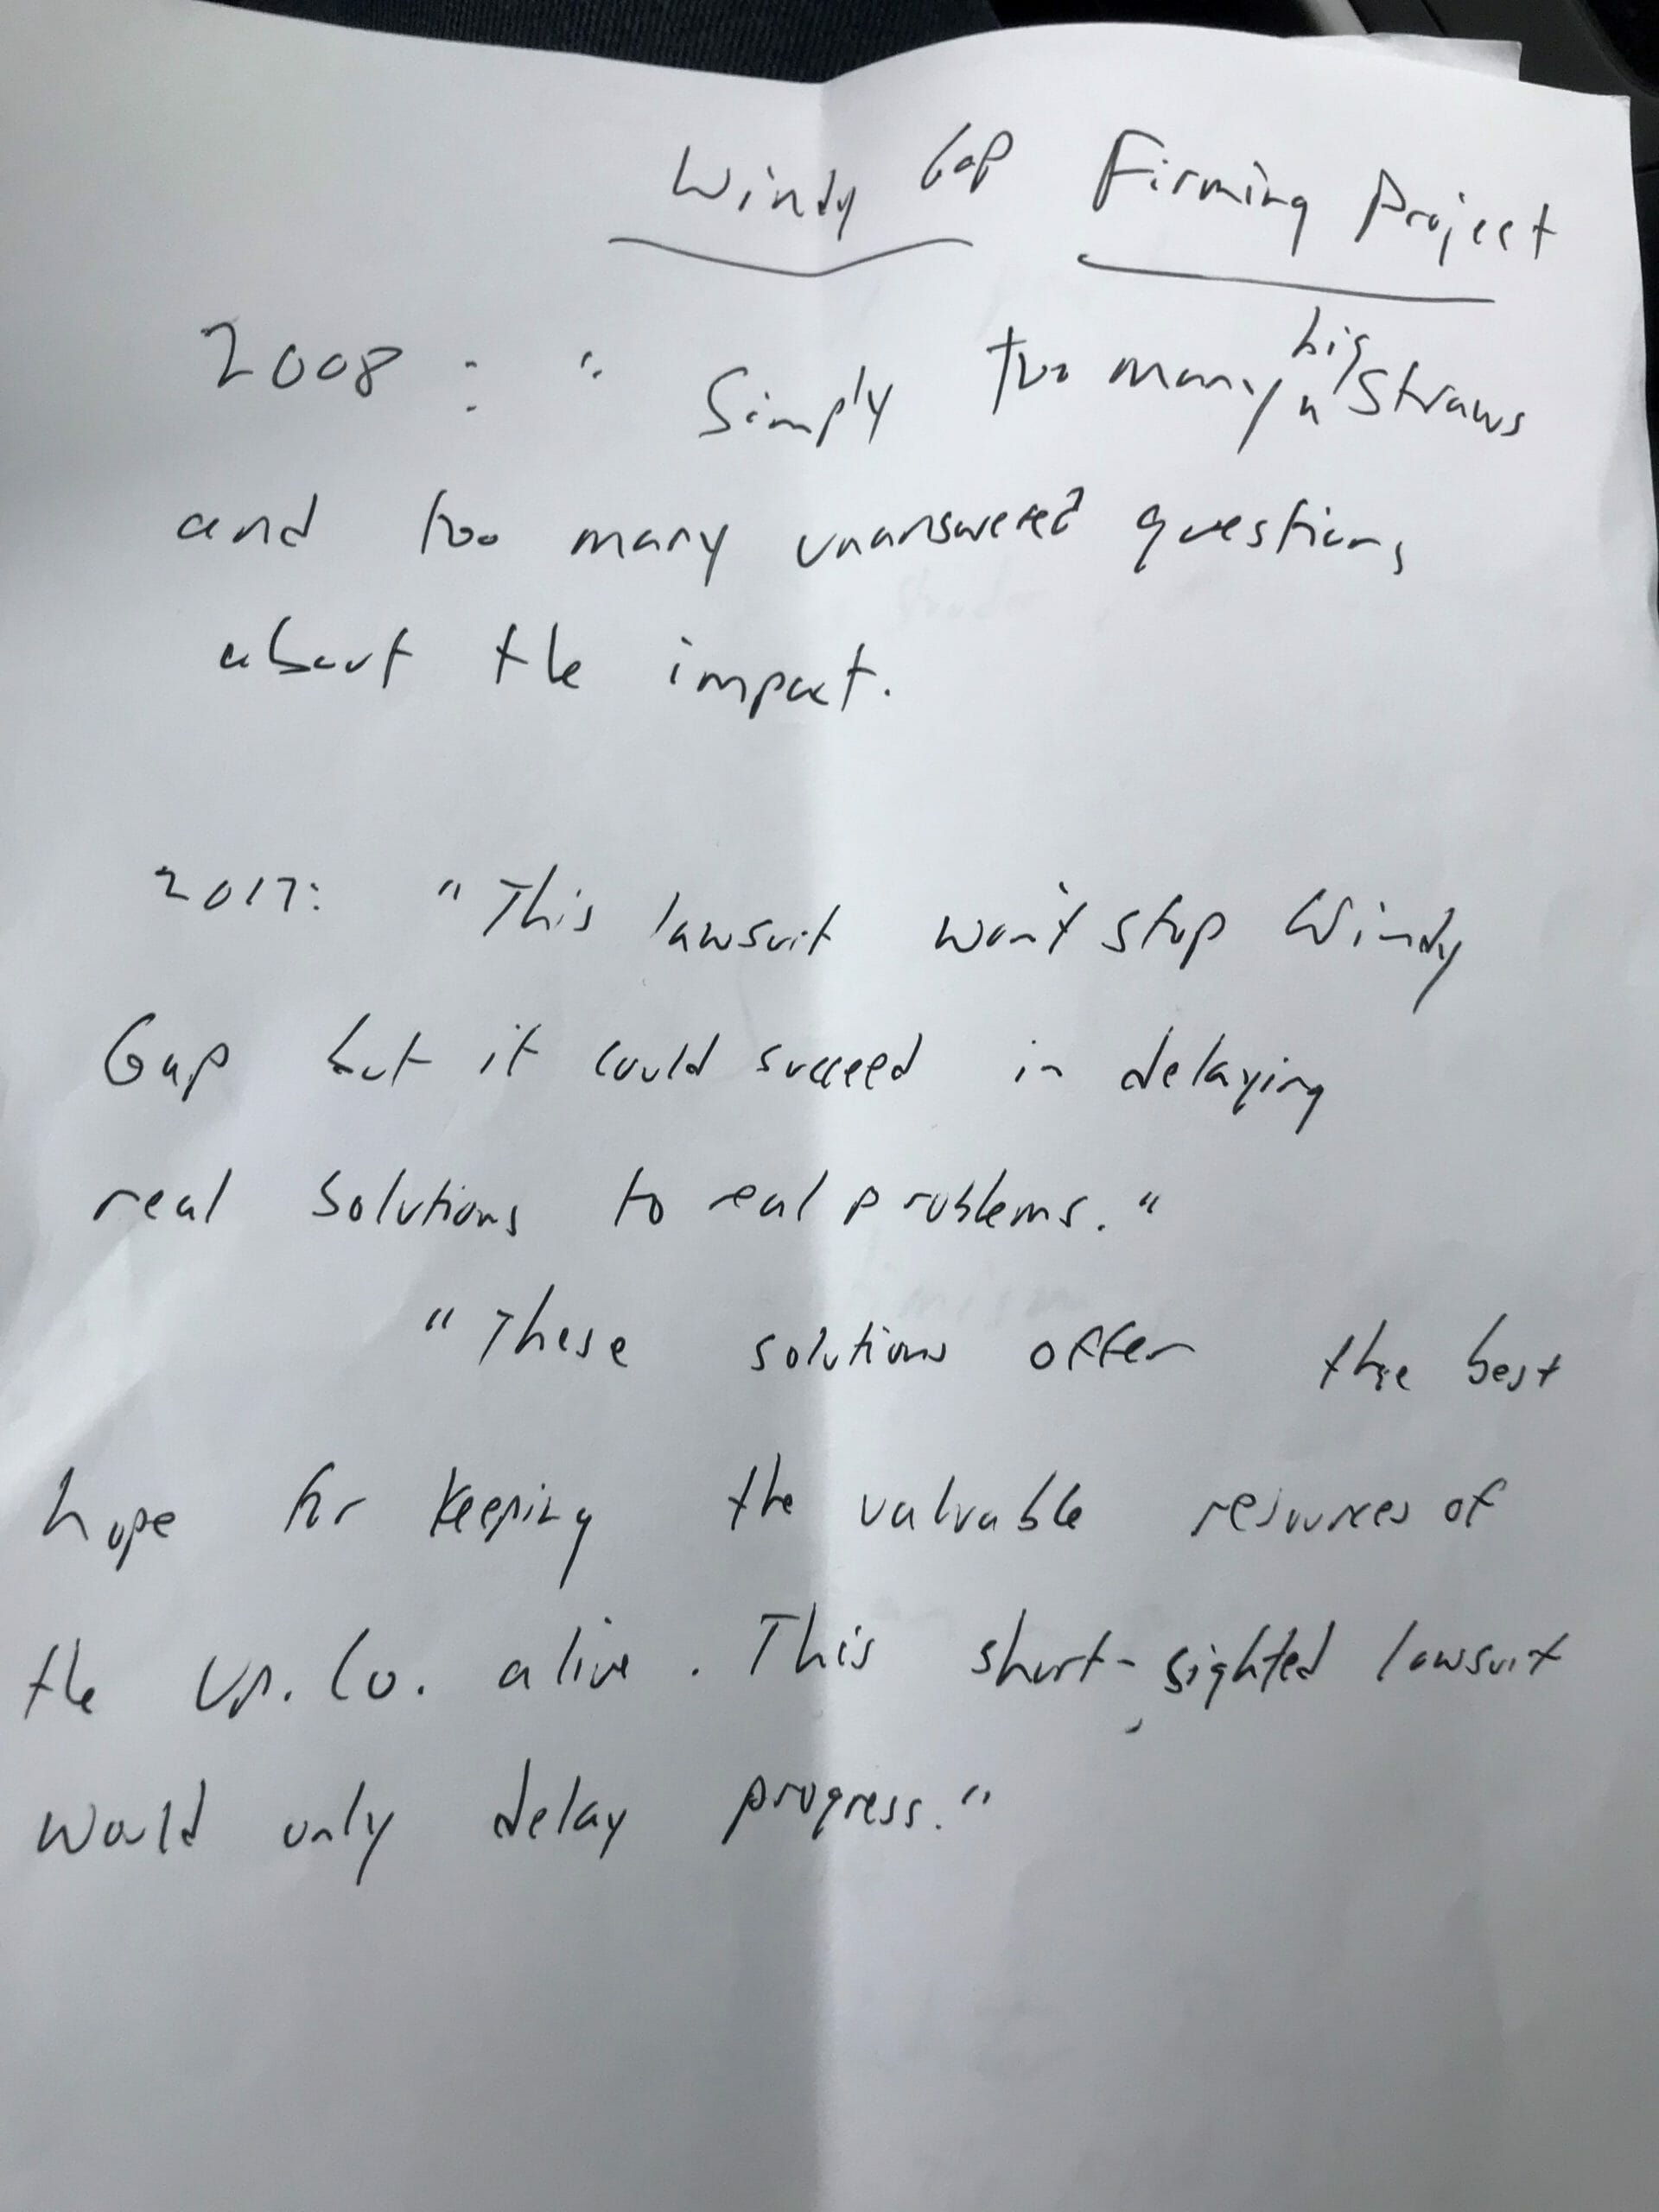 Windy Gap Firming Project
2008 : " Simply too many big straws
and too many unanswered questions
about the impact.
2017: "This lawsuit won't stop Windy
Gap but it could succeed in delaying
real solutions to real problems."
"These solutions offer the best
hope for keeping the valuable resources of
the Up. Co. alive. This short-sighted lawsuit
would only delay progress."